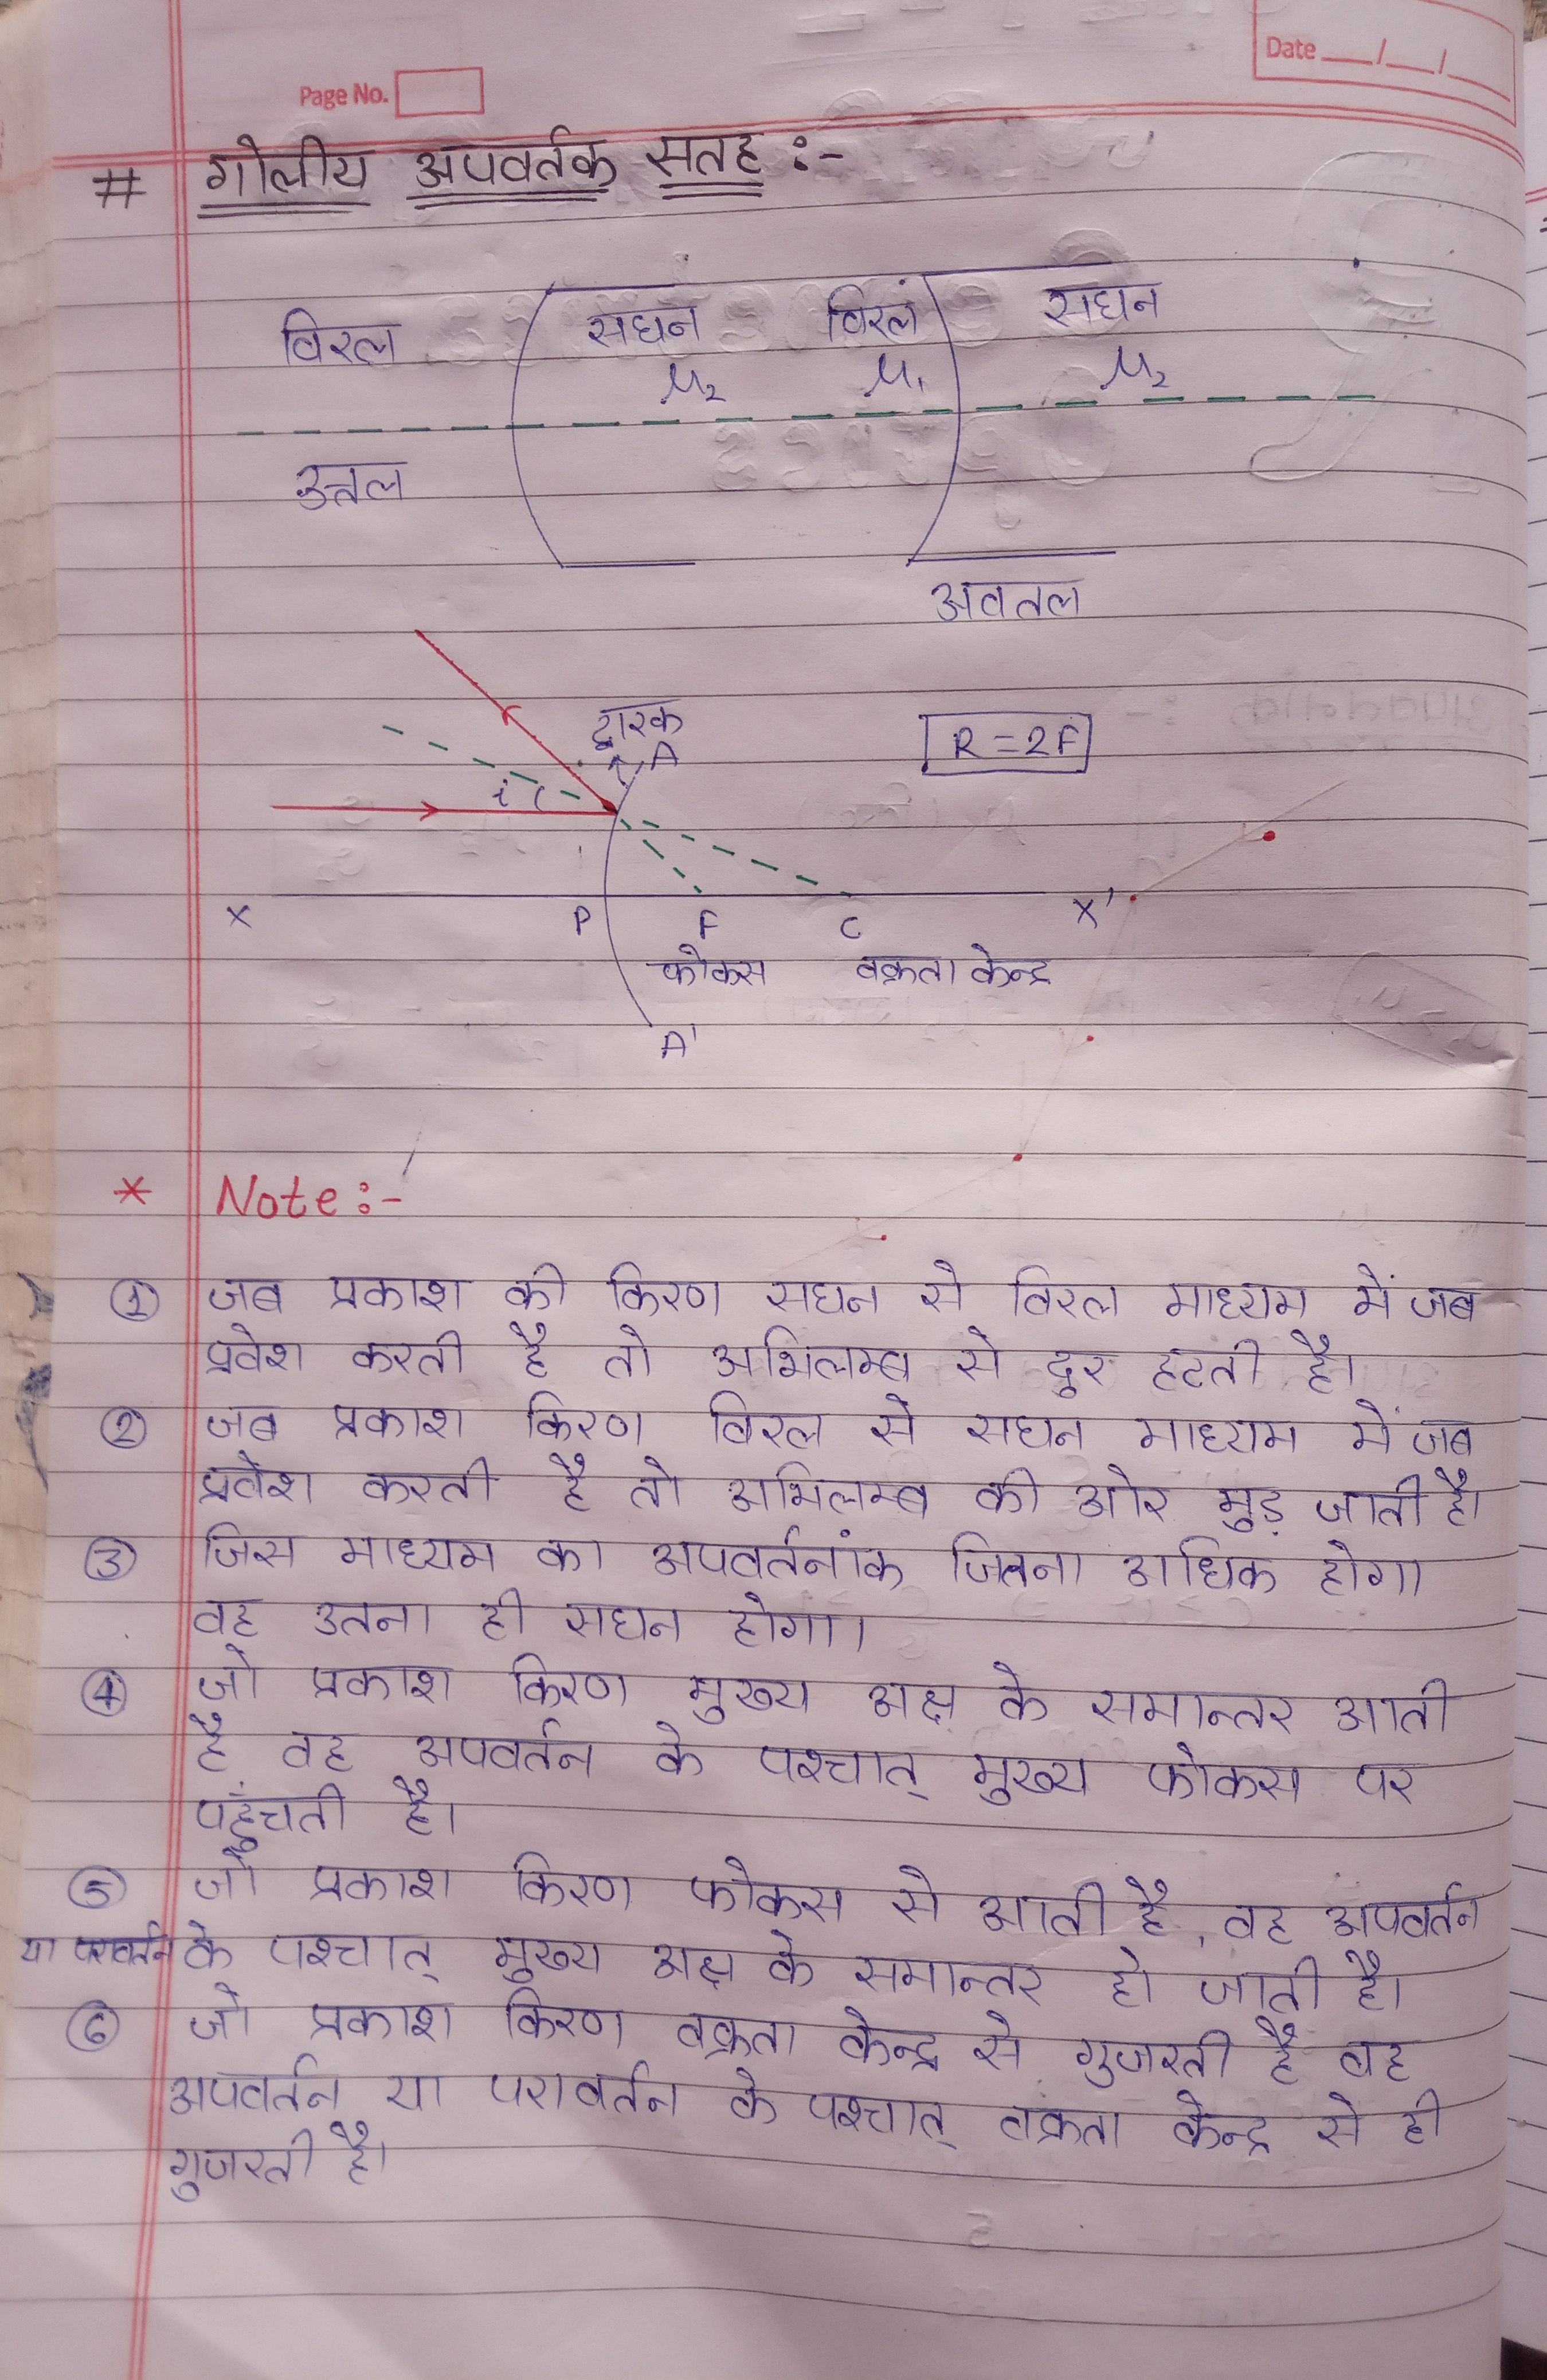 Page No.
Date __/__/__
# गोलीय अपवर्तक सतह :-
विरल सघन विरल सघन
μ₂ μ₁ μ₂
उत्तल
अवतल
द्वारक
A
R = 2F
i r
X P F C X'
फोकस वक्रता केन्द्र
A'
* Note :-
① जब प्रकाश की किरण सघन से विरल माध्यम में जब
प्रवेश करती है तो अभिलम्ब से दुर हटती है।
② जब प्रकाश किरण विरल से सघन माध्यम में जब
प्रवेश करती है तो अभिलम्ब की ओर मुड़ जाती है।
③ जिस माध्यम का अपवर्तनांक जितना अधिक होगा
वह उतना ही सघन होगा।
④ जो प्रकाश किरण मुख्य अक्ष के समान्तर आती
है वह अपवर्तन के पश्चात् मुख्य फोकस पर
पहुंचती है।
⑤ जो प्रकाश किरण फोकस से आती है, वह अपवर्तन
या परावर्तन के पश्चात् मुख्य अक्ष के समान्तर हो जाती है।
⑥ जो प्रकाश किरण वक्रता केन्द्र से गुजरती है वह
अपवर्तन या परावर्तन के पश्चात् वक्रता केन्द्र से ही
गुजरती है।